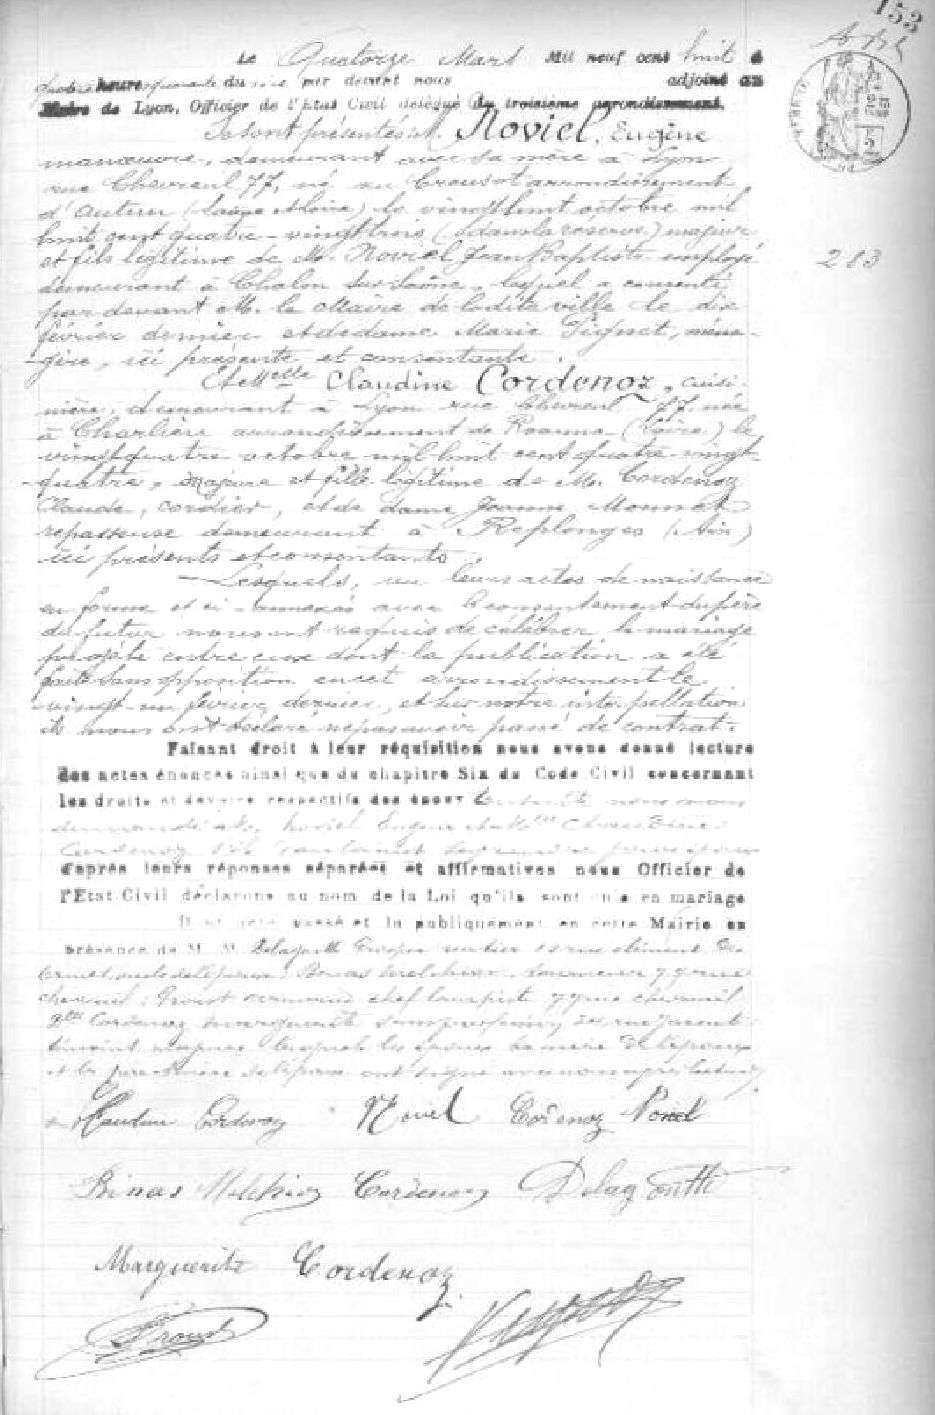 153
Le Quatorze Mars Mil neuf cent huit à
heure quarante du soir par devant nous adjoint au
Maire de Lyon, Officier de l'Etat Civil délégué du troisième arrondissement.
Se sont présentés M. Noviel, Eugène
manœuvre, demeurant avec sa mère à Lyon
rue Chevreul 77, né au Creusot arrondissement
d'Autun (Saône & Loire) le vingt huit octobre mil
huit cent quatre-vingt trois ( dans la réserve ) majeur
et fils légitime de M. Noviel Jean Baptiste employé
demeurant à Chalon sur Saône, lequel a consenti
par devant M. le Maire de ladite ville le dix
février dernier et de dame Marie ména-
-gère, ici présente et consentante.
213
Et Melle Claudine Cordenoz, cuisi-
nière, demeurant à Lyon rue Chevreul 77, née
à Charlieu arrondissement de Roanne (Loire) le
vingt quatre octobre mil huit cent quatre-vingt
-quatre, majeure et fille légitime de M. Cordenoz
Claude, cordier, et de dame Jeanne Monnet
repasseuse demeurant à Replonges (Ain)
ici présents et consentants.
Lesquels, vu leurs actes de naissance
en forme et ci-annexés avec le consentement du père
du futur nous ont requis de célébrer le mariage
projeté entre eux dont la publication a été
faite sans opposition en cet arrondissement le
vingt-un février dernier, et sur notre interpellation
ils nous ont déclaré ne pas avoir passé de contrat.
Faisant droit à leur réquisition nous avons donné lecture
des actes énoncés ainsi que du chapitre Six du Code Civil concernant
les droits et devoirs respectifs des époux Ensuite nous avons
demandé à M. Noviel Eugène et à Melle Claudine
Cordenoz s'ils veulent se prendre pour époux
d'après leurs réponses séparées et affirmatives nous Officier de
l'Etat-Civil déclarons au nom de la Loi qu'ils sont unis en mariage
Il et acte passé et lu publiquement en cette Mairie en
présence de M. M. Delagoutte rentier
Binas Melchior 77 rue
Chevreul ; Proust chef 77 rue Chevreul
Melle Cordenoz Marguerite
témoins majeurs lesquels les époux la mère de l'époux
et les père & mère de l'épouse ont signé avec nous après lecture
Claudine Cordenoz Noviel Cordenoz Noviel
Binas Melchior Cordenoz Delagoutte
Marguerite Cordenoz
Proust